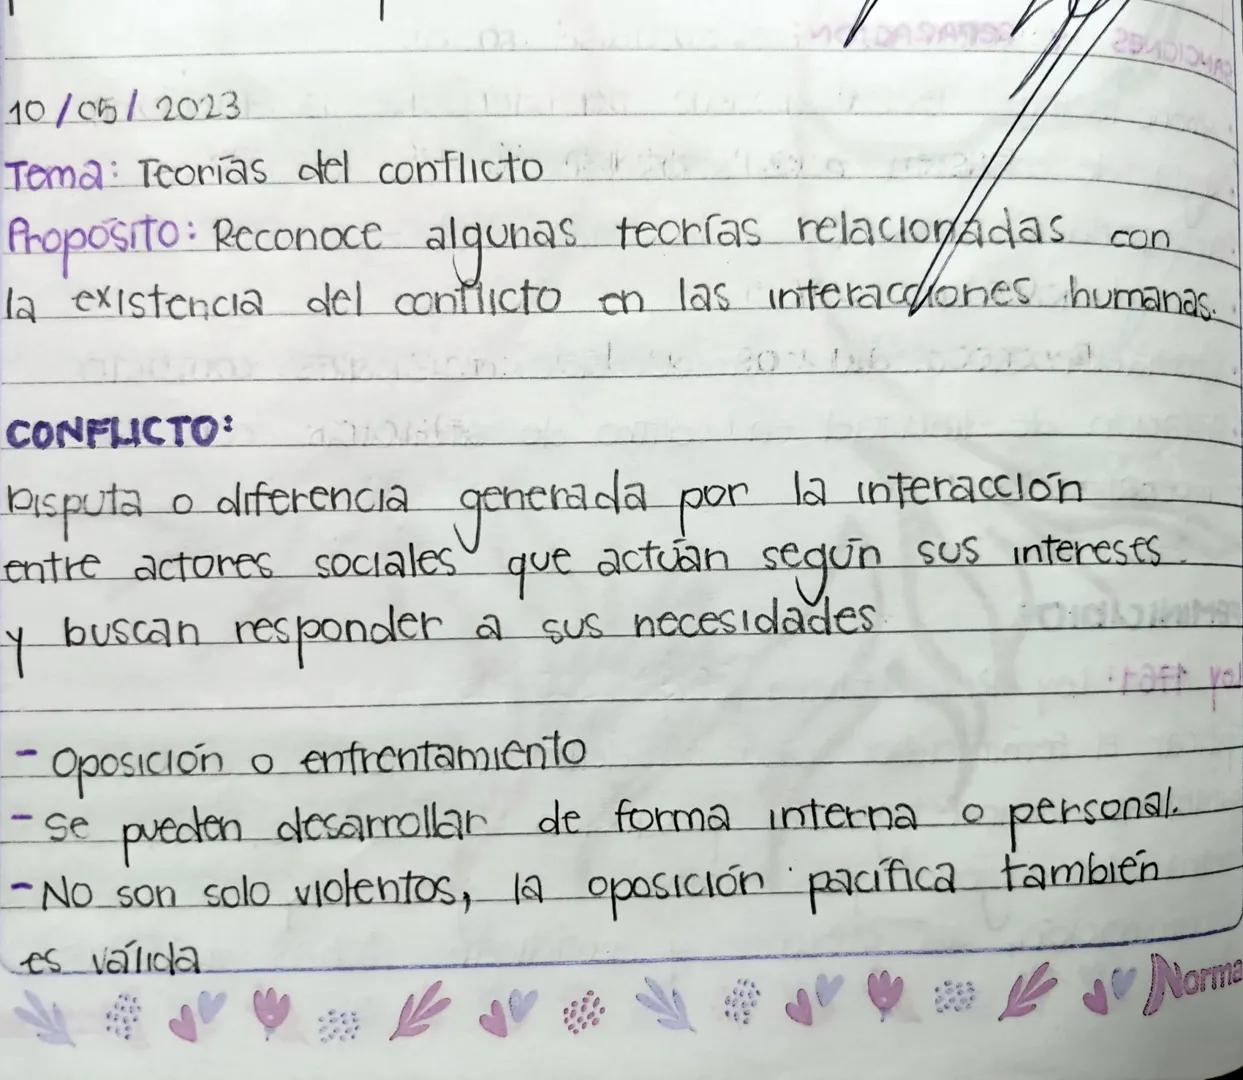 10/05/2023
Tema: Teorías del conflicto
Proposito: Reconoce algunas teorías relacionadas con
la existencia del conflicto en las interacciones humanas.
CONFLICTO:
Disputa o diferencia generada por la interacción
entre actores sociales que actúan según sus intereses
y buscan responder a sus necesidades
- Oposición o enfrentamiento
- Se pueden desarrollar de forma interna o personal.
- No son solo violentos, la oposición pacífica también
es válida
Norma